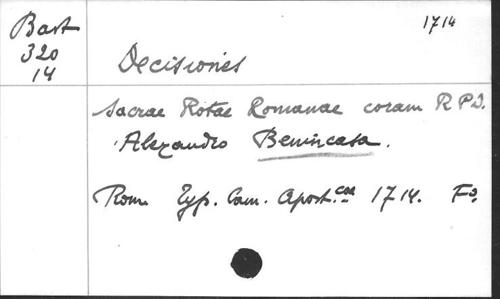 Bart 1714
320
14
Decisiones
Sacrae Rotae Romanae coram R P D.
Alexandro Benincasa.
Rom. Typ. Cam. Apost.cae 1714. Fo.